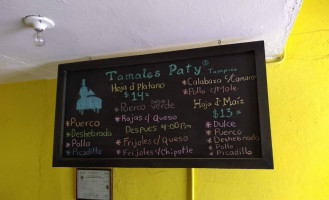 Tamales Paty
Tampico
Hoja d Platano
$14
* Puerco
* Deshebrada
* Pollo
* Picadillo
* Puerco verde
* Rajas c/ queso
Despues 4:00 pm
* Frijoles c/ queso
* Frijoles c/chipotle
* Calabaza c/Camaron
* Pollo c/Mole
Hoja d Maíz
$13
* Dulce
* Puerco
* Deshebrada
* Pollo
* Picadillo